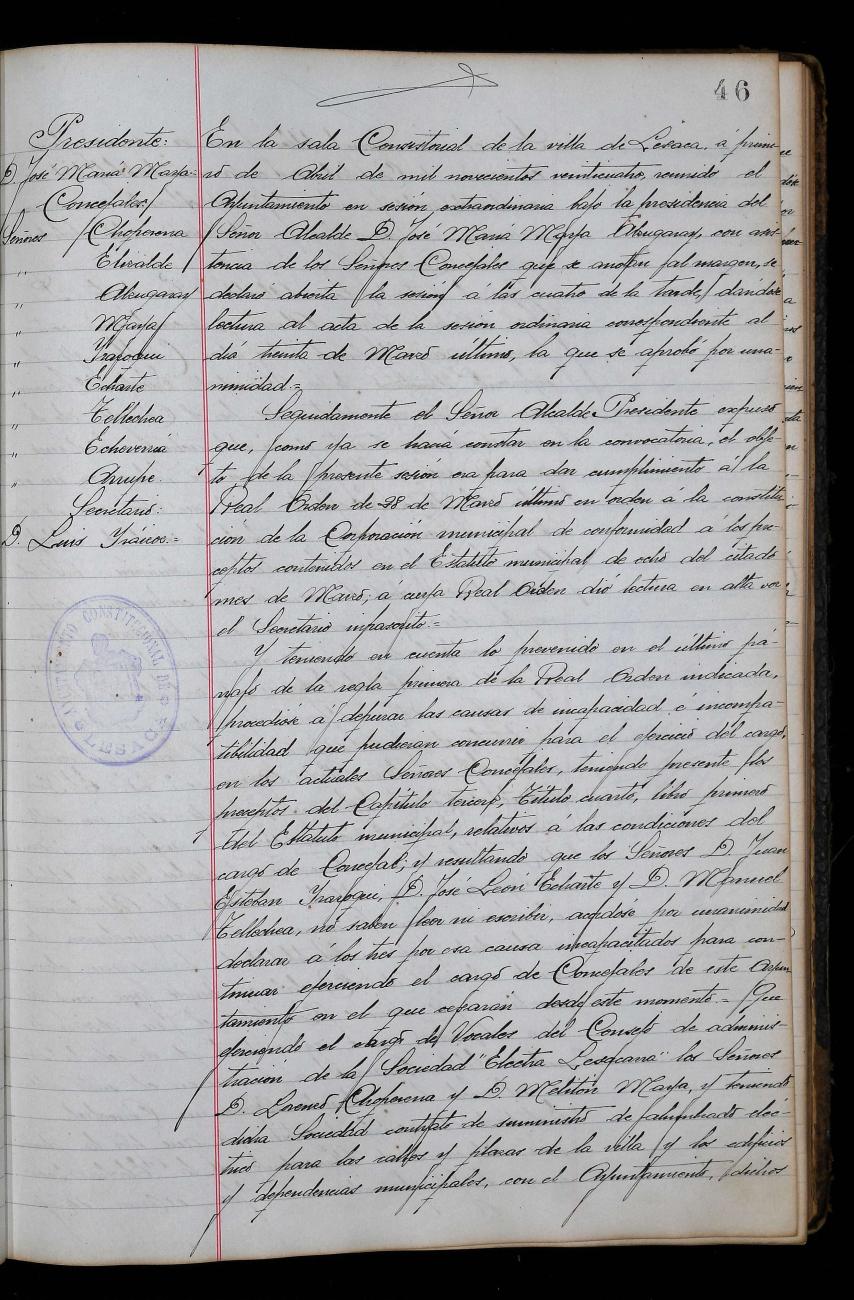 46
Presidente:
D. José María Marfa-
Concejales
Señores Choperena
" Elizalde
" Alzugaray
" Marfa
" Yraroqui
" Echarte
" Tellechea
" Echeverria
" Arrupe.
Secretario:
D. Luis Yráizoz.=
AYUNTAMIENTO CONSTITUCIONAL DE LESACA
En la sala Consistorial de la villa de Lesaca, á prime-
ro de Abril de mil novecientos veinticuatro, reunido el
Ayuntamiento en sesión extraordinaria bajo la presidencia del
Señor Alcalde D. José María Marfa Alzugaray, con asis-
tencia de los Señores Concejales que se anotan al margen, se
declaró abierta la sesión á las cuatro de la tarde, dandose
lectura al acta de la sesión ordinaria correspondiente al
día treinta de Marzo último, la que se aprobó por una-
nimidad.=
Seguidamente el Señor Alcalde Presidente expresó
que, como ya se hacía constar en la convocatoria, el obje-
to de la presente sesión era para dar cumplimiento á la
Real Orden de 28 de Marzo último en orden a la constitu-
cion de la Corporación municipal de conformidad á los pre-
ceptos contenidos en el Estatuto municipal de ocho del citado
mes de Marzo; á cuya Real Orden dió lectura en alta voz
el Secretario infrascrito=
Y teniendo en cuenta lo prevenido en el último pá-
rrafo de la regla primera de la Real Orden indicada,
procediose á depurar las causas de incapacidad é incompa-
tibilidad que pudieran concurrir para el ejercicio del cargo,
en los actuales Señores Concejales, teniendo presente los
preceptos del Capítulo tercero, Título cuarto, libro primero
del Estatuto municipal, relativos á las condiciones del
cargo de Concejal; y resultando que los Señores D. Juan
Esteban Yraroqui, D. José León Echarte y D. Manuel
Tellechea, no saben leer ni escribir, acordóse por unanimidad
declarar á los tres por esa causa incapacitados para con-
tinuar ejerciendo el cargo de Concejales de este Ayun-
tamiento en el que cesarán desde este momento.= Que
ejerciendo el cargo de Vocales del Consejo de adminis-
tración de la Sociedad "Electra Lesacana" los Señores
D. Lorenzo Choperena y D. Melitón Marfa, y teniendo
dicha Sociedad contrato de suministro de alumbrado eléc-
trico para las calles y plazas de la villa y los edificios
y dependencias municipales, con el Ayuntamiento, dichos